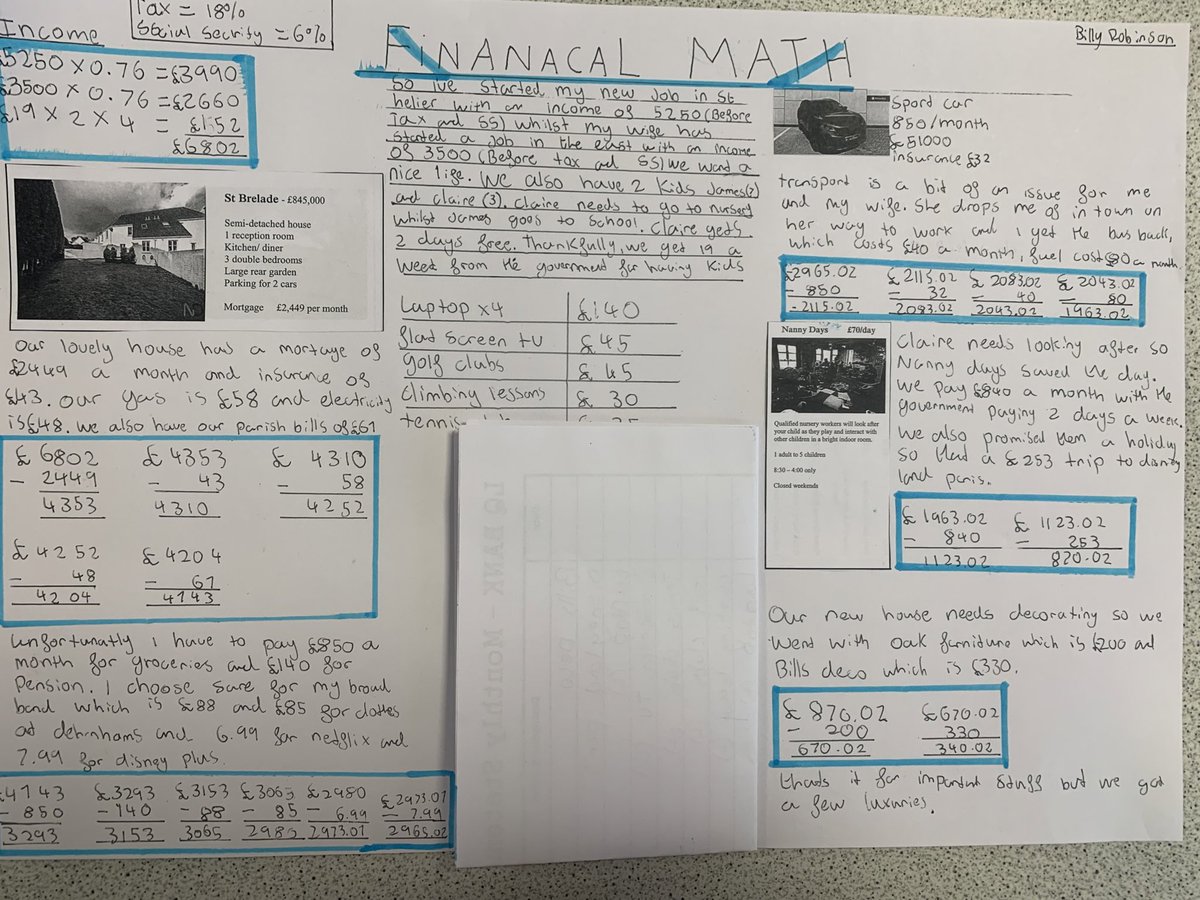 Tax = 18%
Social Security = 6%
Income
£5250 x 0.76 = £3990
£3500 x 0.76 = £2660
£19 x 2 x 4 = £152
£6802
St Brelade - £845,000
Semi-detached house
1 reception room
Kitchen/ diner
3 double bedrooms
Large rear garden
Parking for 2 cars
Mortgage £2,449 per month
Our lovely house has a mortage of
£2449 a month and insurance of
£43. Our gas is £58 and electricity
is £48. we also have our parish bills of £61
£ 6802 £ 4353 £ 4310
- 2449 - 43 - 58
4353 4310 4252
£ 4252 £ 4204
- 48 - 61
4204 4143
Unfortunatly I have to pay £850 a
month for groceries and £140 for
Pension. I choose sure for my broad
band which is £88 and £85 for clothes
at debenhams and 6.99 for netflix and
7.99 for disney plus.
£4143 £3293 £3153 £3065 £2980 £2973.01
- 850 - 140 - 88 - 85 - 6.99 - 7.99
3293 3153 3065 2980 2973.01 2965.02
FINANACAL MATH
So ive started my new job in St
helier with an income of 5250 (Before
Tax and SS) whilst my wife has
started a job in the east with an income
of 3500 (Before tax and SS) we want a
nice life. We also have 2 kids James(2)
and claire (3). Claire needs to go to nursery
whilst James goes to School. Claire gets
2 days free. Thankfully, we get 19 a
week from the government for having kids
Laptop x4 £140
flad screen tv £45
golf clubs £45
Climbing lessons £30
tennis
Billy Robinson
Sport car
850/month
£51000
insurance £32
transport is a bit of an issue for me
and my wife. She drops me of in town on
her way to work and I get the bus back,
which costs £40 a month, fuel cost £80 a month.
£2965.02 £2115.02 £2083.02 £2043.02
- 850 - 32 - 40 - 80
2115.02 2083.02 2043.02 1963.02
Nanny Days £70/day
Qualified nursery workers will look after
your child as they play and interact with
other children in a bright indoor room.
1 adult to 5 children
8:30 – 4:00 only
Closed weekends
Claire needs looking after so
Nanny days saved the day.
we pay £840 a month with the
government paying 2 days a week.
We also promised them a holiday
so thats a £253 trip to disney
land paris.
£1963.02 £ 1123.02
- 840 - 253
1123.02 870.02
Our new house needs decorating so we
went with Oak furniture which is £200 and
Bills deco which is £330.
£ 870.02 £670.02
- 200 330
670.02 340.02
thats it for important stuff but we got
a few luxuries.